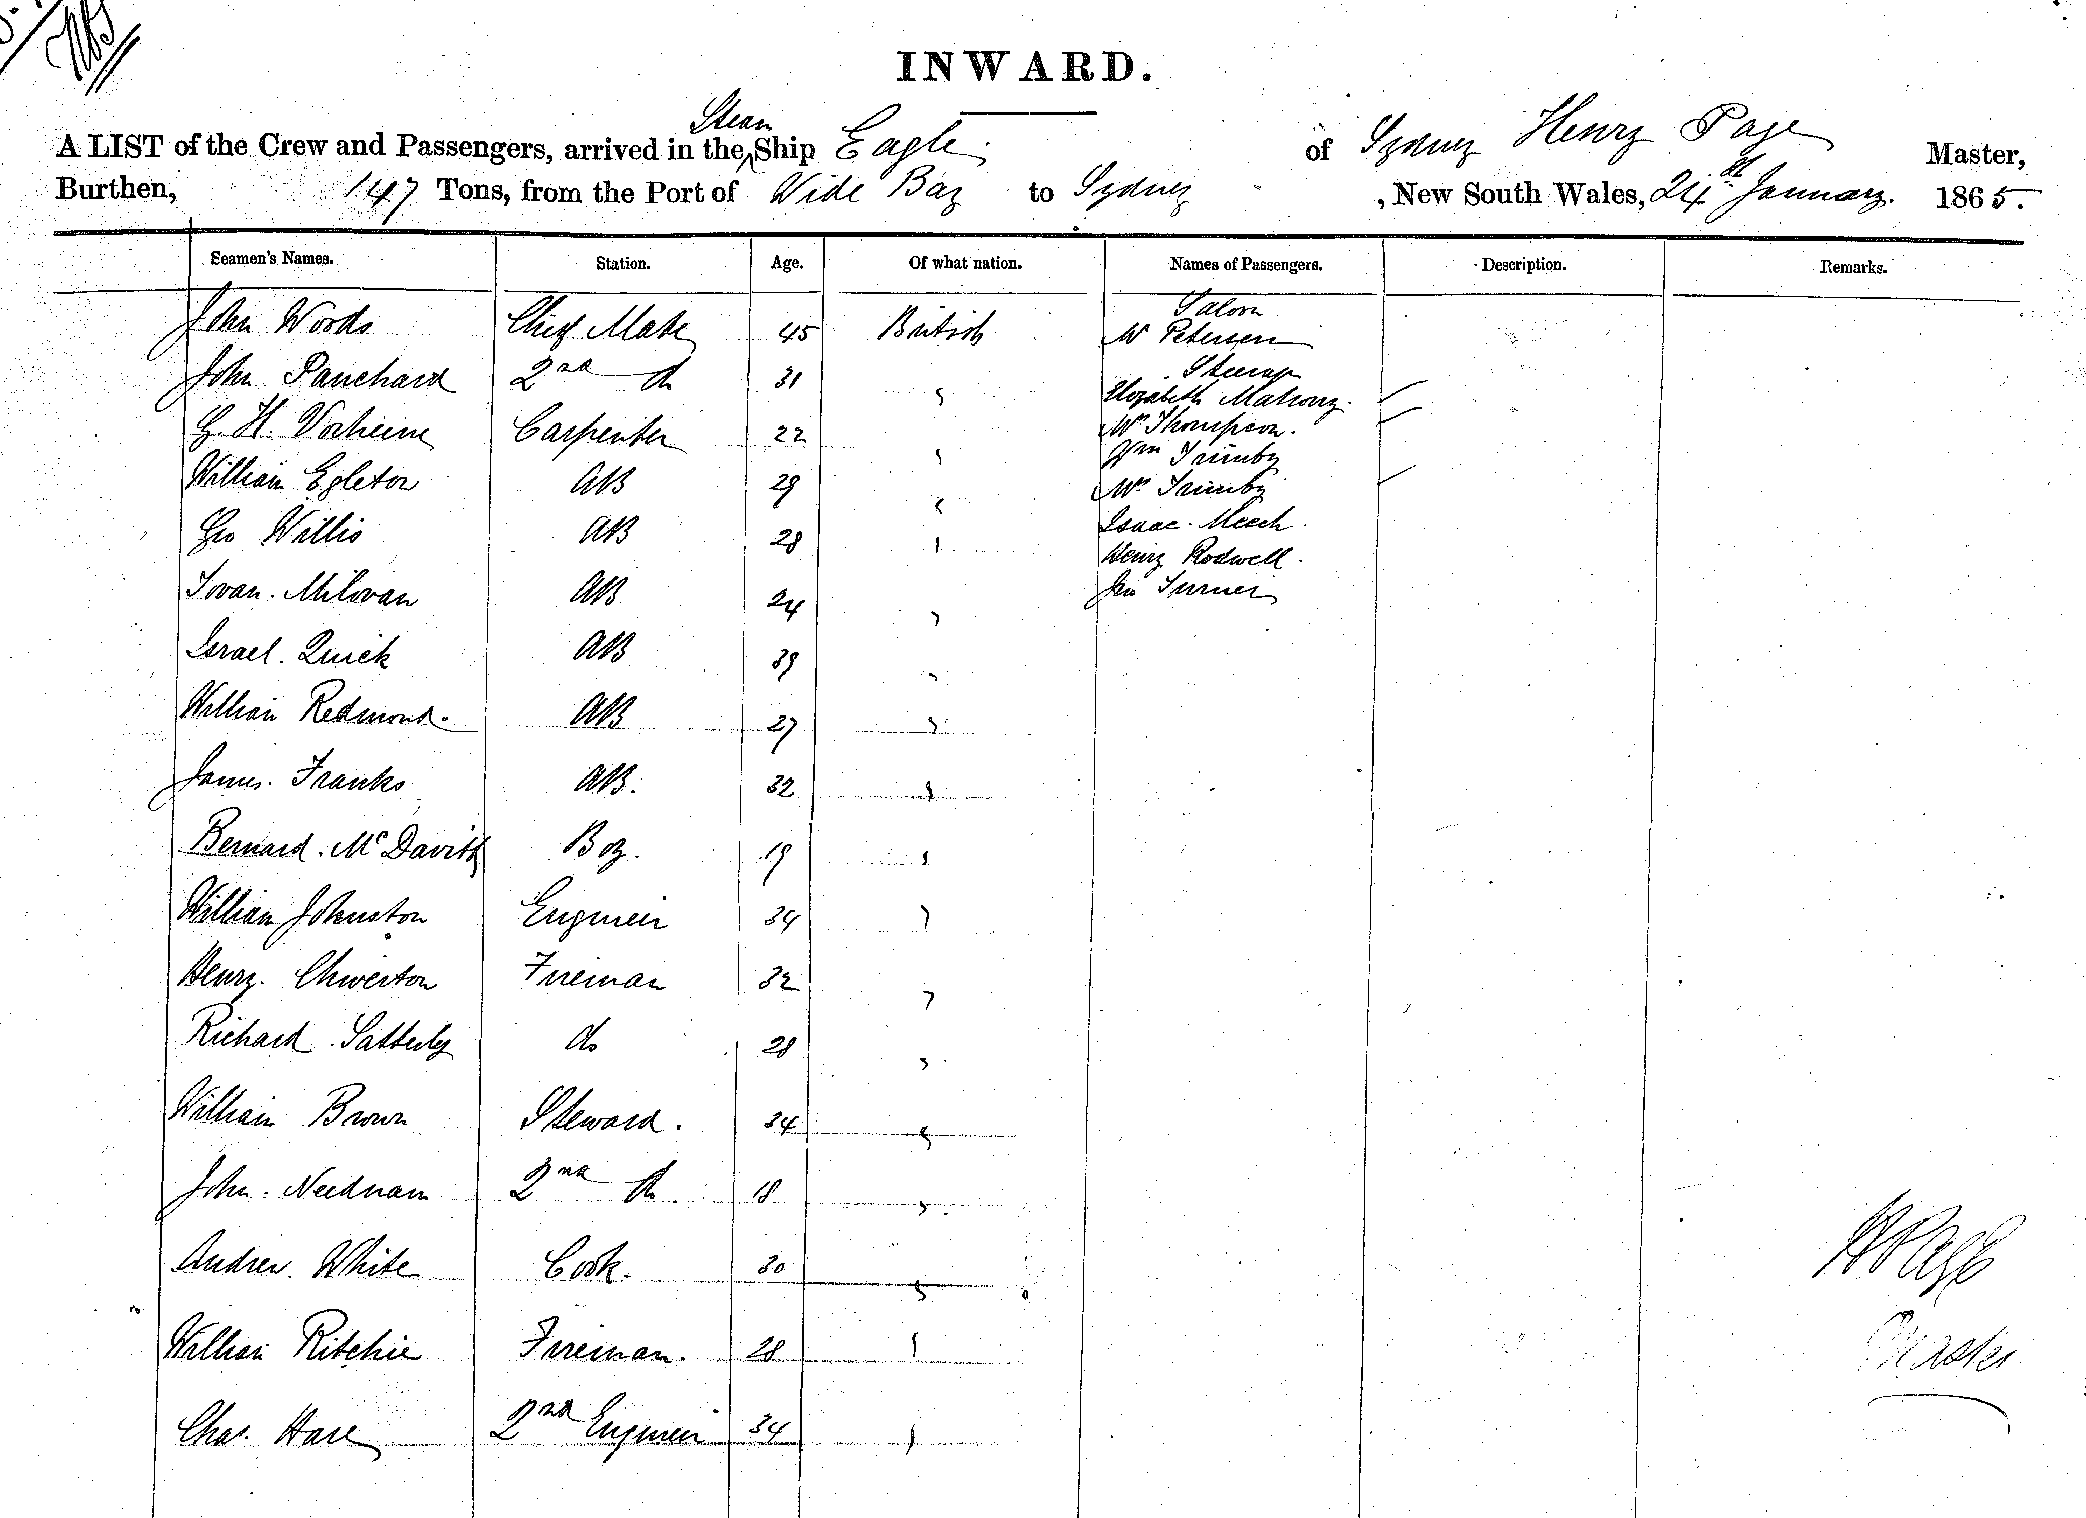 INWARD.
A LIST of the Crew and Passengers, arrived in the Steam Ship Eagle of Sydney Henry Page Master,
Burthen, 147 Tons, from the Port of Wide Bay to Sydney, New South Wales, 24th January. 1865.
Seamen's Names. Station. Age. Of what nation. Names of Passengers. Description. Remarks.
Saloon
John Woods Chief Mate 45 British Mr Petersen
Steerage
John Panchard 2nd do 31 " Elizabeth Mahony.
Mrs Thompson.
Carpenter 22 " Wm Trimby
William Egleton AB 29 " Mrs Trimby
Isaac Meech.
Geo Willis AB 28 " Henry Rodwell.
Jovan. Milovan AB 24 " Jas Turner
Israel. Quick AB 39 "
William Redmond. AB 27 "
James. Franks AB. 32 "
Bernard. McDavitt Boy. 19 "
William Johnston Engineer 34 "
Henry. Chiverton Fireman 32 "
Richard Satterley do 28 "
William Brown Steward. 34 "
John. Needham 2nd do. 18 "
Andrew. White Cook. 30 "
William Ritchie Fireman. 28 "
Chas. Hare 2nd Engineer 34 "
H Page
Master